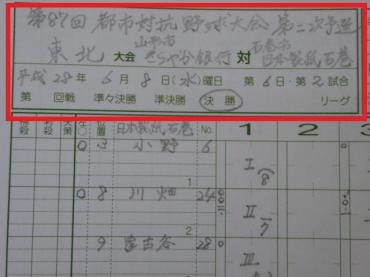 第87回 都市対抗野球大会 第二次予選
山形市 石巻市
東北 大会 きらやか銀行 対 日本製紙石巻
平成28年6月8日(水)曜日 第6日・第2試合
第 回戦 準々決勝 準決勝 決勝 リーグ
捕殺 刺殺 失策 位置 日本製紙石巻 No. 1 2 3
0 3 小野 6 I 8
1
0 8 川畑 24 II 7
2
9 28 0 III